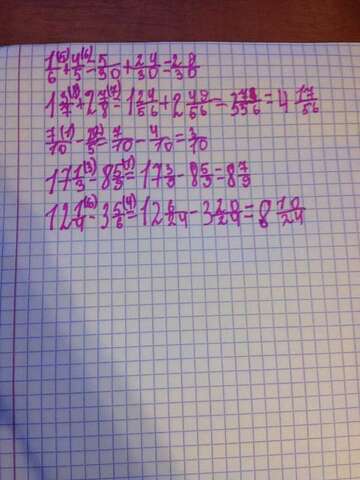 1/6(5) + 4/5(6) = 5/30 + 24/30 = 29/30
1 3/7(8) + 2 7/8(7) = 1 24/56 + 2 49/56 = 3 73/56 = 4 17/56
7/10(1) - 2/5(2) = 7/10 - 4/10 = 3/10
17 1/3(3) - 8 5/9(1) = 17 3/9 - 8 5/9 = 8 7/9
12 1/4(6) - 3 5/6(4) = 12 6/24 - 3 20/24 = 8 10/24